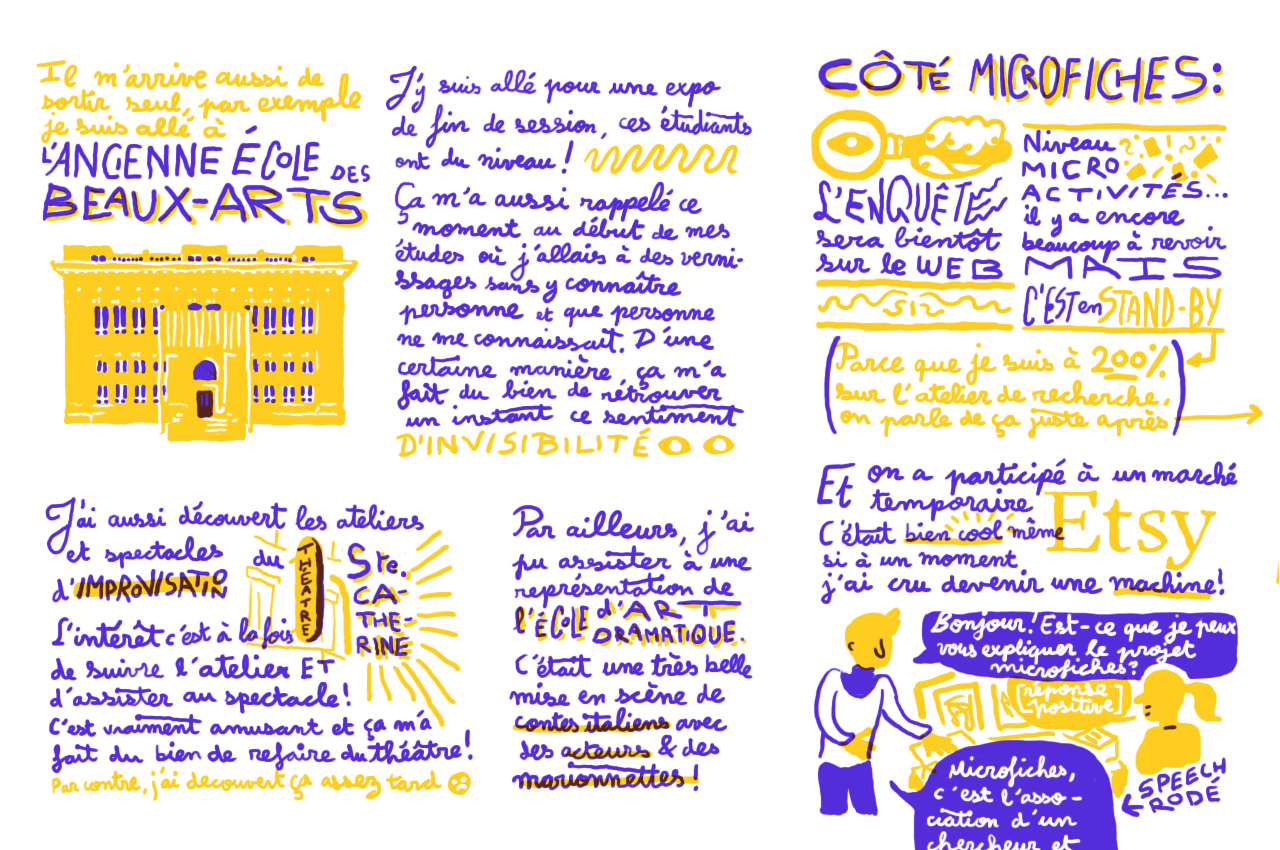 Il m'arrive aussi de
sortir seul, par exemple
je suis allé à
L'ANCIENNE ÉCOLE DES
BEAUX-ARTS
J'y suis allé pour une expo
de fin de session, ces étudiants
ont du niveau !
Ça m'a aussi rappelé ce
moment au début de mes
études où j'allais à des verni-
ssages sans y connaître
personne et que personne
ne me connaissait. D'une
certaine manière, ça m'a
fait du bien de retrouver
un instant ce sentiment
D'INVISIBILITÉ
J'ai aussi découvert les ateliers
et spectacles
d'IMPROVISATION
du THÉATRE Ste.
CA-
THE-
RINE
L'intérêt c'est à la fois
de suivre l'atelier ET
d'assister au spectacle !
C'est vraiment amusant et ça m'a
fait du bien de refaire du théâtre !
Par contre, j'ai découvert ça assez tard
Par ailleurs, j'ai
pu assister à une
représentation de
l'ÉCOLE d'ART
DRAMATIQUE.
C'était une très belle
mise en scène de
contes italiens avec
des acteurs & des
marionnettes !
CÔTÉ MICROFICHES:
L'ENQUÊTE
sera bientôt
sur le WEB
SIR
Niveau
MICRO
ACTIVITÉS...
il y a encore
beaucoup à revoir
MAIS
C'EST en STAND-BY
(Parce que je suis à 200%
sur l'atelier de recherche,
on parle de ça juste après)
Et on a participé à un marché
temporaire Etsy
C'était bien cool même
si à un moment
j'ai cru devenir une machine !
Bonjour ! Est-ce que je peux
vous expliquer le projet
microfiches ?
[réponse
positive]
Microfiches,
c'est l'asso-
ciation d'un
chercheur et
SPEECH
RODÉ